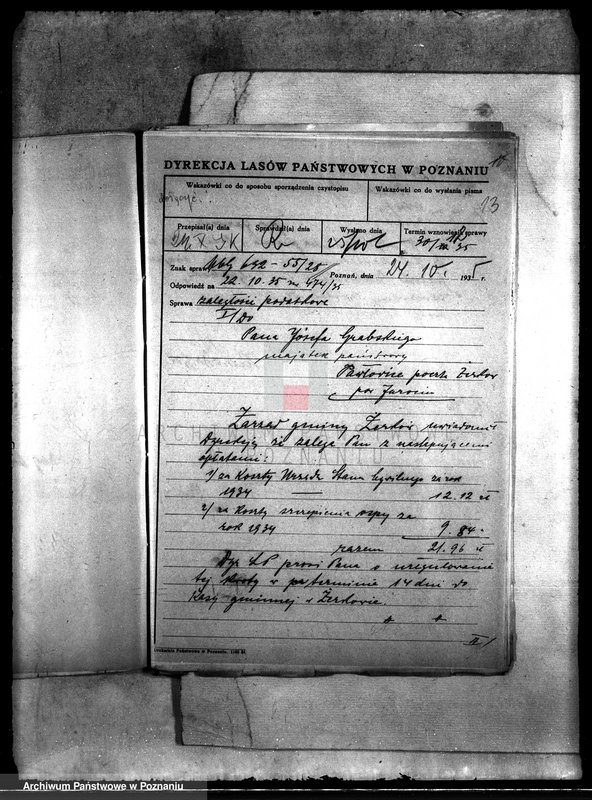 DYREKCJA LASÓW PAŃSTWOWYCH W POZNANIU
Wskazówki co do sposobu sporządzenia czystopisu
Wskazówki co do wysłania pisma
dołączyć.
13
Przepisał(a) dnia
Sprawdził(a) dnia
Wysłano dnia
Termin wznowienia sprawy
Znak sprawy 632-55/28
Poznań, dnia 24. 10. 1935 r.
Odpowiedź na 22.10.35 nr 474/35
Sprawa zaległości podatkowe
I/ Do
Pana Józefa Grabskiego
majątek państwowy
Pawłowice poczta Żerków
pow Jarocin
Zarząd gminy Żerków uwiadomił
Dyrekcję że zalega Pan z następującemi
opłatami:
1/ za koszty Urzędu Stanu Cywilnego za rok
1934 — 12.12 zł
2/ za koszty szczepienia ospy za
rok 1934 9.84 "
razem 21.96 zł
Dyr LP prosi Pana o uregulowanie
tej kwoty w terminie 14 dni do
Kasy gminnej w Żerkowie.
II/
Drukarnia Państwowa w Poznaniu.
ARCHIWUM
POZNANIU
Archiwum Państwowe w Poznaniu